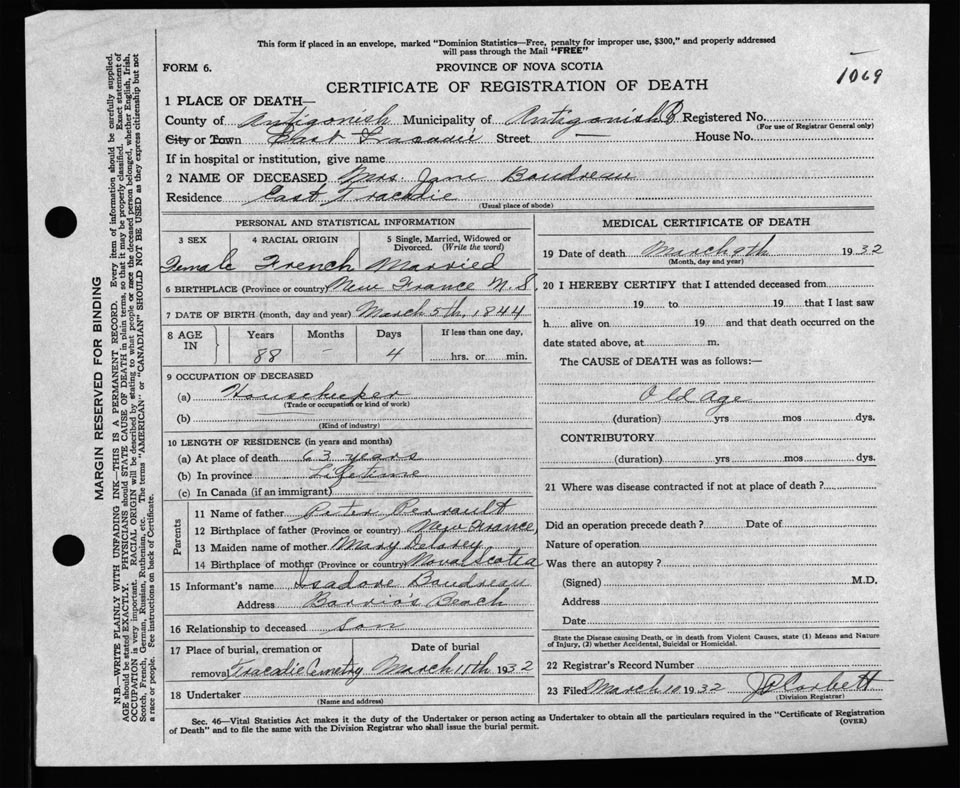 This form if placed in an envelope, marked "Dominion Statistics—Free, penalty for improper use, $300," and properly addressed
will pass through the Mail "FREE"
FORM 6. PROVINCE OF NOVA SCOTIA
1069
CERTIFICATE OF REGISTRATION OF DEATH
1 PLACE OF DEATH—
County of Antigonish Municipality of Antigonish Registered No.
(For use of Registrar General only)
City or Town East Tracadie Street — House No.
If in hospital or institution, give name
2 NAME OF DECEASED Mrs. Jane Boudreau
Residence East Tracadie
(Usual place of abode)
PERSONAL AND STATISTICAL INFORMATION
3 SEX 4 RACIAL ORIGIN 5 Single, Married, Widowed or
Divorced. (Write the word)
Female French Married
6 BIRTHPLACE (Province or country) New France N.S.
7 DATE OF BIRTH (month, day and year) March 5th, 1844
8 AGE IN Years Months Days If less than one day,
88 - 4 hrs. or min.
9 OCCUPATION OF DECEASED
(a) Housekeeper
(Trade or occupation or kind of work)
(b)
(Kind of industry)
10 LENGTH OF RESIDENCE (in years and months)
(a) At place of death 63 years
(b) In province Lifetime
(c) In Canada (if an immigrant)
Parents
11 Name of father Peter Perrault
12 Birthplace of father (Province or country) New France,
13 Maiden name of mother Mary Delorey
14 Birthplace of mother (Province or country) Nova Scotia
15 Informant's name Isadore Boudreau
Address Barrio's Beach
16 Relationship to deceased son
17 Place of burial, cremation or Date of burial
removal Tracadie Cemetry March 11th 1932
18 Undertaker
(Name and address)
MEDICAL CERTIFICATE OF DEATH
19 Date of death March 9th 1932
(Month, day and year)
20 I HEREBY CERTIFY that I attended deceased from
19 to 19 that I last saw
h alive on 19 and that death occurred on the
date stated above, at m.
The CAUSE of DEATH was as follows:—
Old Age
(duration) yrs mos dys.
CONTRIBUTORY
(duration) yrs mos dys.
21 Where was disease contracted if not at place of death?
Did an operation precede death? Date of
Nature of operation
Was there an autopsy?
(Signed) M.D.
Address
Date
State the Disease causing Death, or in death from Violent Causes, state (1) Means and Nature
of Injury, (2) whether Accidental, Suicidal or Homicidal.
22 Registrar's Record Number
23 Filed March 10 1932 J P Corbett
(Division Registrar)
Sec. 46—Vital Statistics Act makes it the duty of the Undertaker or person acting as Undertaker to obtain all the particulars required in the "Certificate of Registration
of Death" and to file the same with the Division Registrar who shall issue the burial permit.
(OVER)
MARGIN RESERVED FOR BINDING
N.B.—WRITE PLAINLY WITH UNFADING INK—THIS IS A PERMANENT RECORD. Every item of information should be carefully supplied.
AGE should be stated EXACTLY. PHYSICIANS should STATE CAUSE OF DEATH in plain terms, so that it may be properly classified. Exact statement of
OCCUPATION is very important. RACIAL ORIGIN will be described by stating to what people or race the deceased person belonged, whether English, Irish,
Scotch, French, German, Russian, Ruthenian, etc. The terms "AMERICAN" or "CANADIAN" SHOULD NOT BE USED as they express citizenship but not
a race or people. See instructions on back of Certificate.